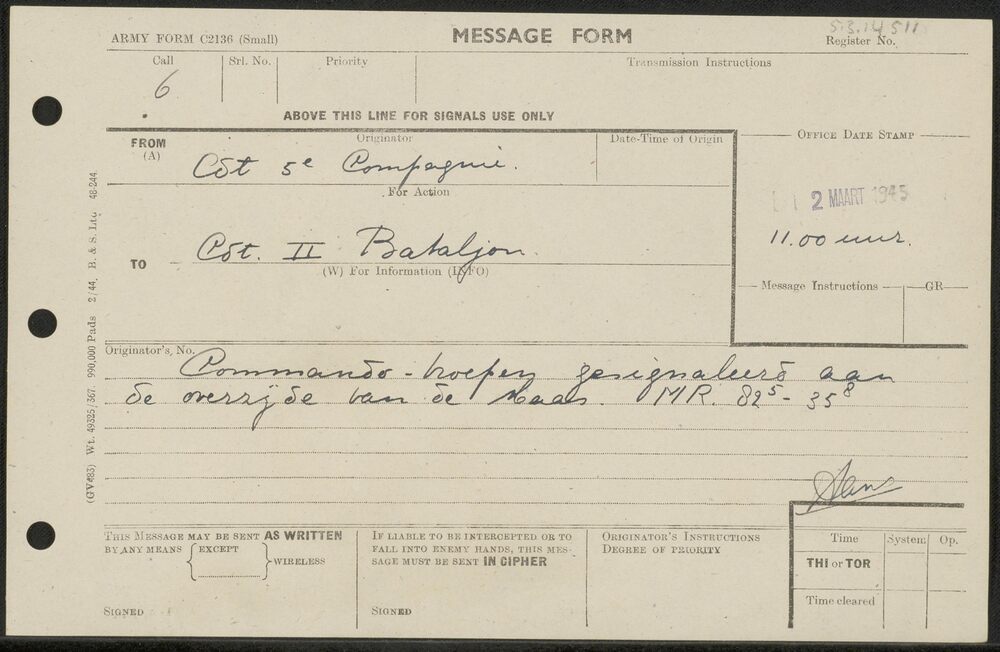 5.3.14511
ARMY FORM C2136 (Small)
MESSAGE FORM
Register No.
Call
Srl. No.
Priority
Transmission Instructions
6
ABOVE THIS LINE FOR SIGNALS USE ONLY
FROM
(A)
Originator
Date-Time of Origin
OFFICE DATE STAMP
Cdt 5e Compagnie.
For Action
2 MAART 1945
11.00 uur.
TO
Cdt. II Bataljon.
(W) For Information (INFO)
Message Instructions
GR
Originator's No.
Commando-troepen gesignaleerd aan
de overzijde van de Maas. MR. 825-358
THIS MESSAGE MAY BE SENT AS WRITTEN
BY ANY MEANS
EXCEPT
WIRELESS
SIGNED
IF LIABLE TO BE INTERCEPTED OR TO
FALL INTO ENEMY HANDS, THIS MES-
SAGE MUST BE SENT IN CIPHER
SIGNED
ORIGINATOR'S INSTRUCTIONS
DEGREE OF PRIORITY
Time
System
Op.
THI or TOR
Time cleared
(GV483) Wt. 49325/367. 990,000 Pads 2/44. B. & S. Ltd 48-244.